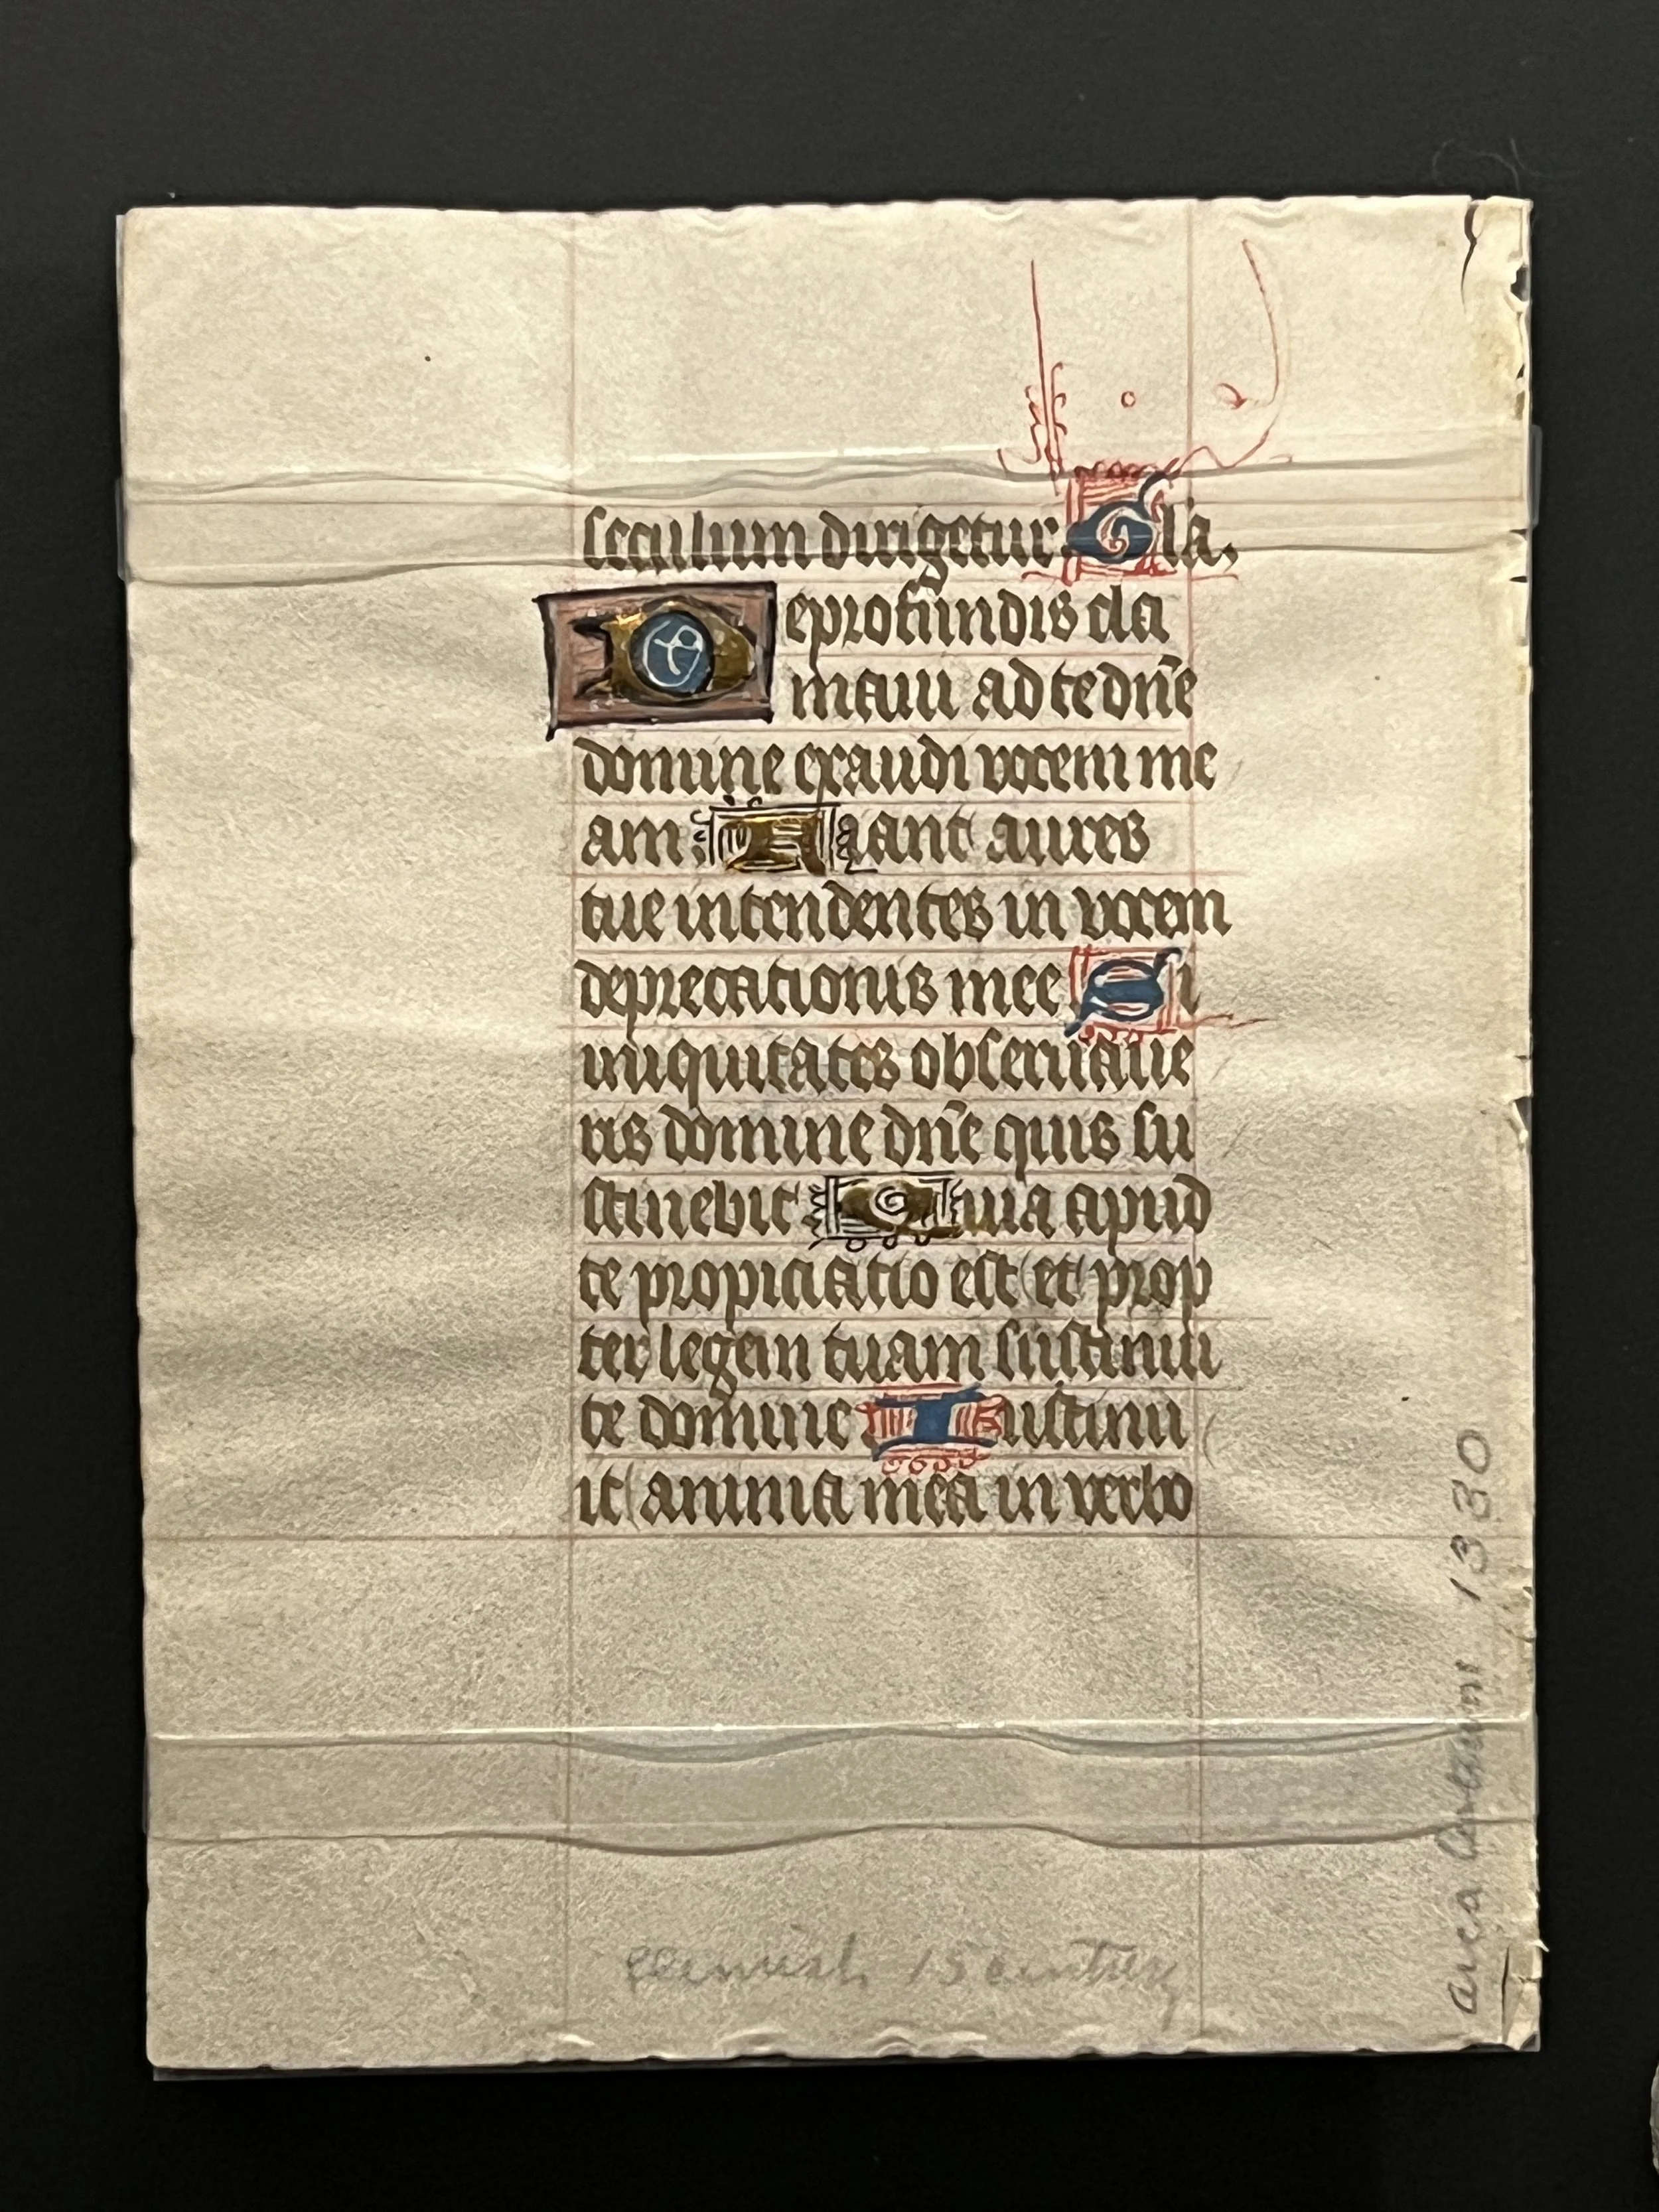 seculum dirigetur Gla.
De profundis cla
maui ad te dn̄e
domine exaudi vocem me
am: Fiant aures
tue intendentes in vocem
deprecationis mee Si
iniquitates obseruaue
ris domine dn̄e quis su
stinebit Quia apud
te propiciatio est et prop
ter legem tuam sustinui
te domine Sustinu
it anima mea in verbo
Flemish 15 century
1330